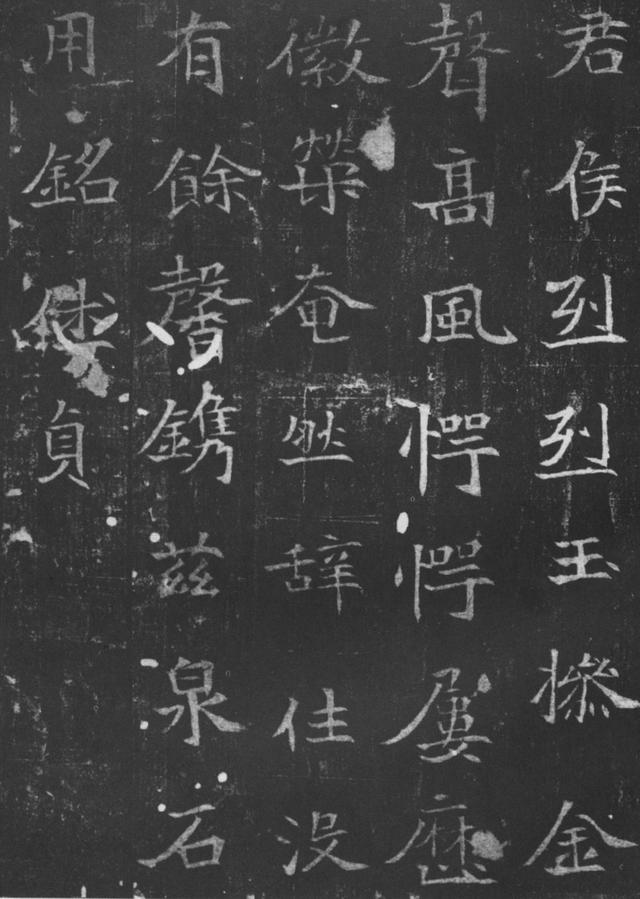 君侯烈烈玉摻金
聲高風愕愕屢歷
徽榮奄然辞住没
有餘馨鐫茲泉石
用銘貞